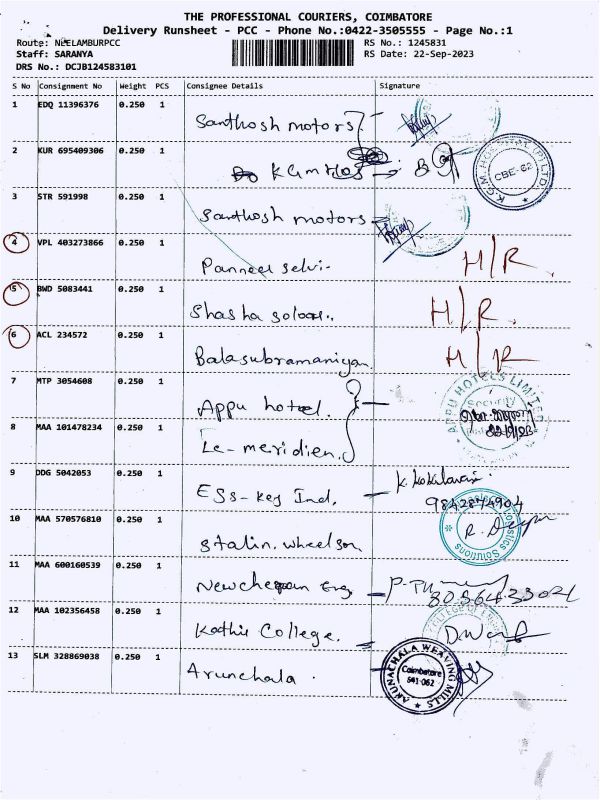 THE PROFESSIONAL COURIERS, COIMBATORE
Delivery Runsheet - PCC - Phone No.:0422-3505555 - Page No.:1
Route: NEELAMBURPCC
Staff: SARANYA
DRS No.: DCJB124583101
RS No.: 1245831
RS Date: 22-Sep-2023
S No Consignment No Weight PCS Consignee Details Signature
1 EDQ 11396376 0.250 1 Santhosh motors
2 KUR 695409306 0.250 1 KGM Hos
K.G.M. HOSPITAL (P) LTD. CBE-62
3 STR 591998 0.250 1 Santhosh motors
4 VPL 403273866 0.250 1 Panneer selvi. H/R.
5 BWD 5083441 0.250 1 Shasha H/R.
6 ACL 234572 0.250 1 Balasubramaniyan. H/R
7 MTP 3054608 0.250 1 Appu hotel.
APPU HOTELS LIMITED Security
22/9/23
8 MAA 101478234 0.250 1 Le-meridien.
9 DDG 5042053 0.250 1 ESS-key Ind. K. Kokilavani
9842874904
10 MAA 570576810 0.250 1 Stalin. wheelson R. Deepa
Logistics Solutions
11 MAA 600160539 0.250 1 Eng
12 MAA 102356458 0.250 1 Kathir College.
13 SLM 328869038 0.250 1 Arunchala.
ARUNACHALA WEAVING MILLS Coimbatore 641-062